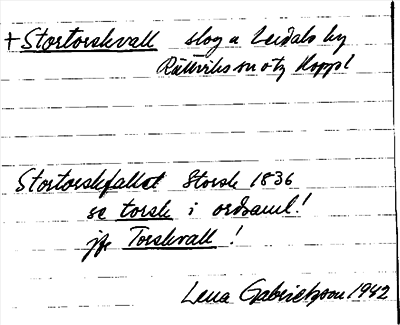 + Stortorskvall skog u Leidals by
Rättviks sn o tg Koppl
Stortorskfallet Storsk 1836
se torsk i ordsaml!
jfr Torskvall!
Lena Gabrielsson 1942